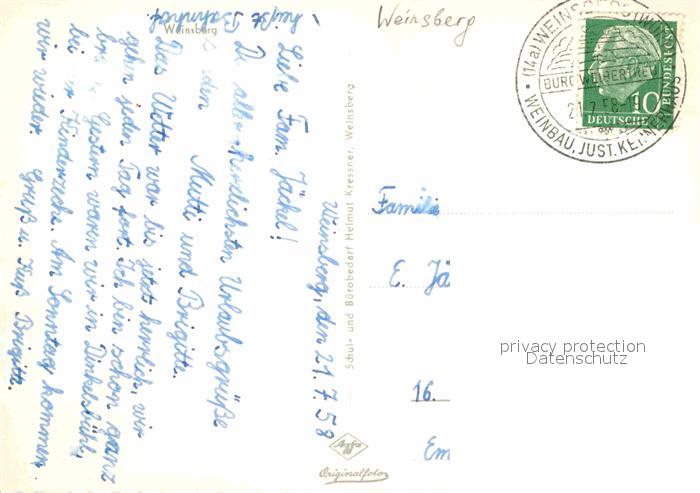 Weinsberg
Weinsburg
(14a) WEINSBERG (WÜRTT)
BURG WEIBERTREU
21.7.58-1
WEINBAU, JUST. KERNERHAUS
10
DEUTSCHE
BUNDESPOST
Weinsberg, den 21.7.58
Liebe Fam. Jäckel!
Die allerherzlichsten Urlaubsgrüße
den Mutti und Brigitte.
Das Wetter war bis jetzt herrlich, wir
gehen jeden Tag fort. Ich bin schon ganz
Gestern waren wir in Dinkelsbühl,
bei der Kinderzeche. Am Sonntag kommen
wir wieder. Gruß u. Kuß Brigitte.
Bahnhof
Schul- und Bürobedarf Helmut Kressner, Weinsberg
Famili
E. Jä
16.
Em
privacy protection
Datenschutz
Agfa
Originalfoto